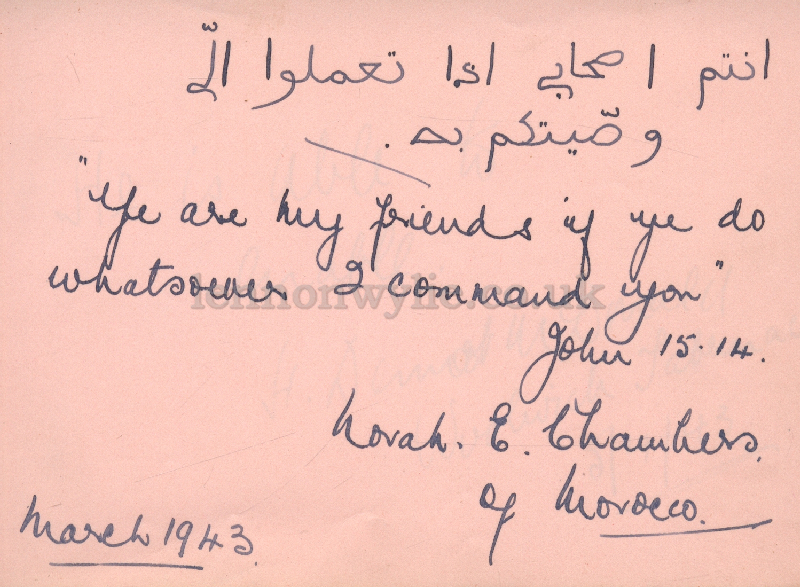 انتم اصحابي اذا تعملوا الّي
وصّيتكم به .
"Ye are my friends if ye do
whatsoever I command you"
lennonwylie.co.uk
John 15.14.
Norah. E. Chambers.
of Morocco.
March 1943.